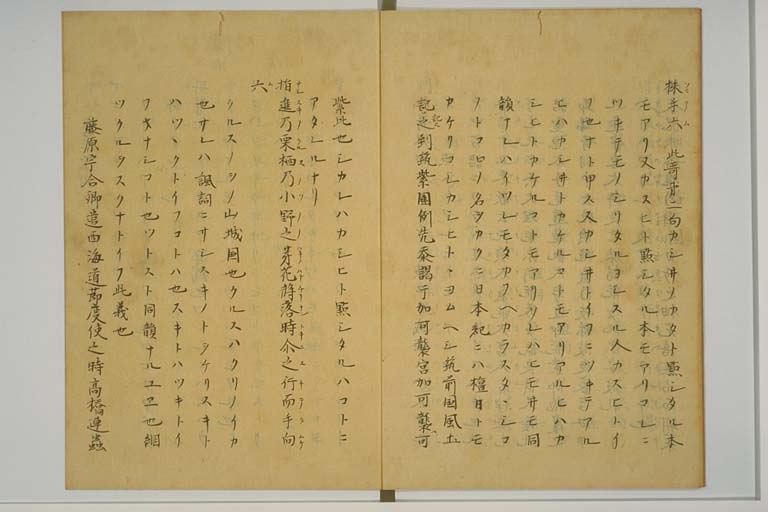 採手六 此哥第二句カシヰノカタト點シタル本
モアリ又カスヒト點シタル本モアリコレニ
ツキテモノシリタルヨシスル人カスヒトイ
フ也ナト申ス又カシヰトイフニツキテアル
ヒハカシヰトカケルコトモアリアルヒハカ
シヒトカケルコトモアリ
韻ナレハイツレモタカフヘカラスタヽシコ
ノトコロノ名ヲカクニ日本紀ニハ橿日トモ
カケリコレカシヒトヽヨムヘシ筑前国風土
記之到筑紫國例先参謁于加可襲宮加可襲可
紫比也シカレハカシヒト點シタルハコトニ
アタレルナリ
指進乃粟栖乃小野之芽花落時尒之行而手向
六
クルスノヲノ山城國也クルスハクリノイカ
也サレハ諷詞ニサシスキノトツケリスキト
ハツヽクトイフコトハ也スキトハツキトイ
フタナシコト也ツトスト同韻ナルユヱ也網
ツクルヲスクナトイフ此義也
藤原宇合卿遣西海道節度使之時高橋連蟲